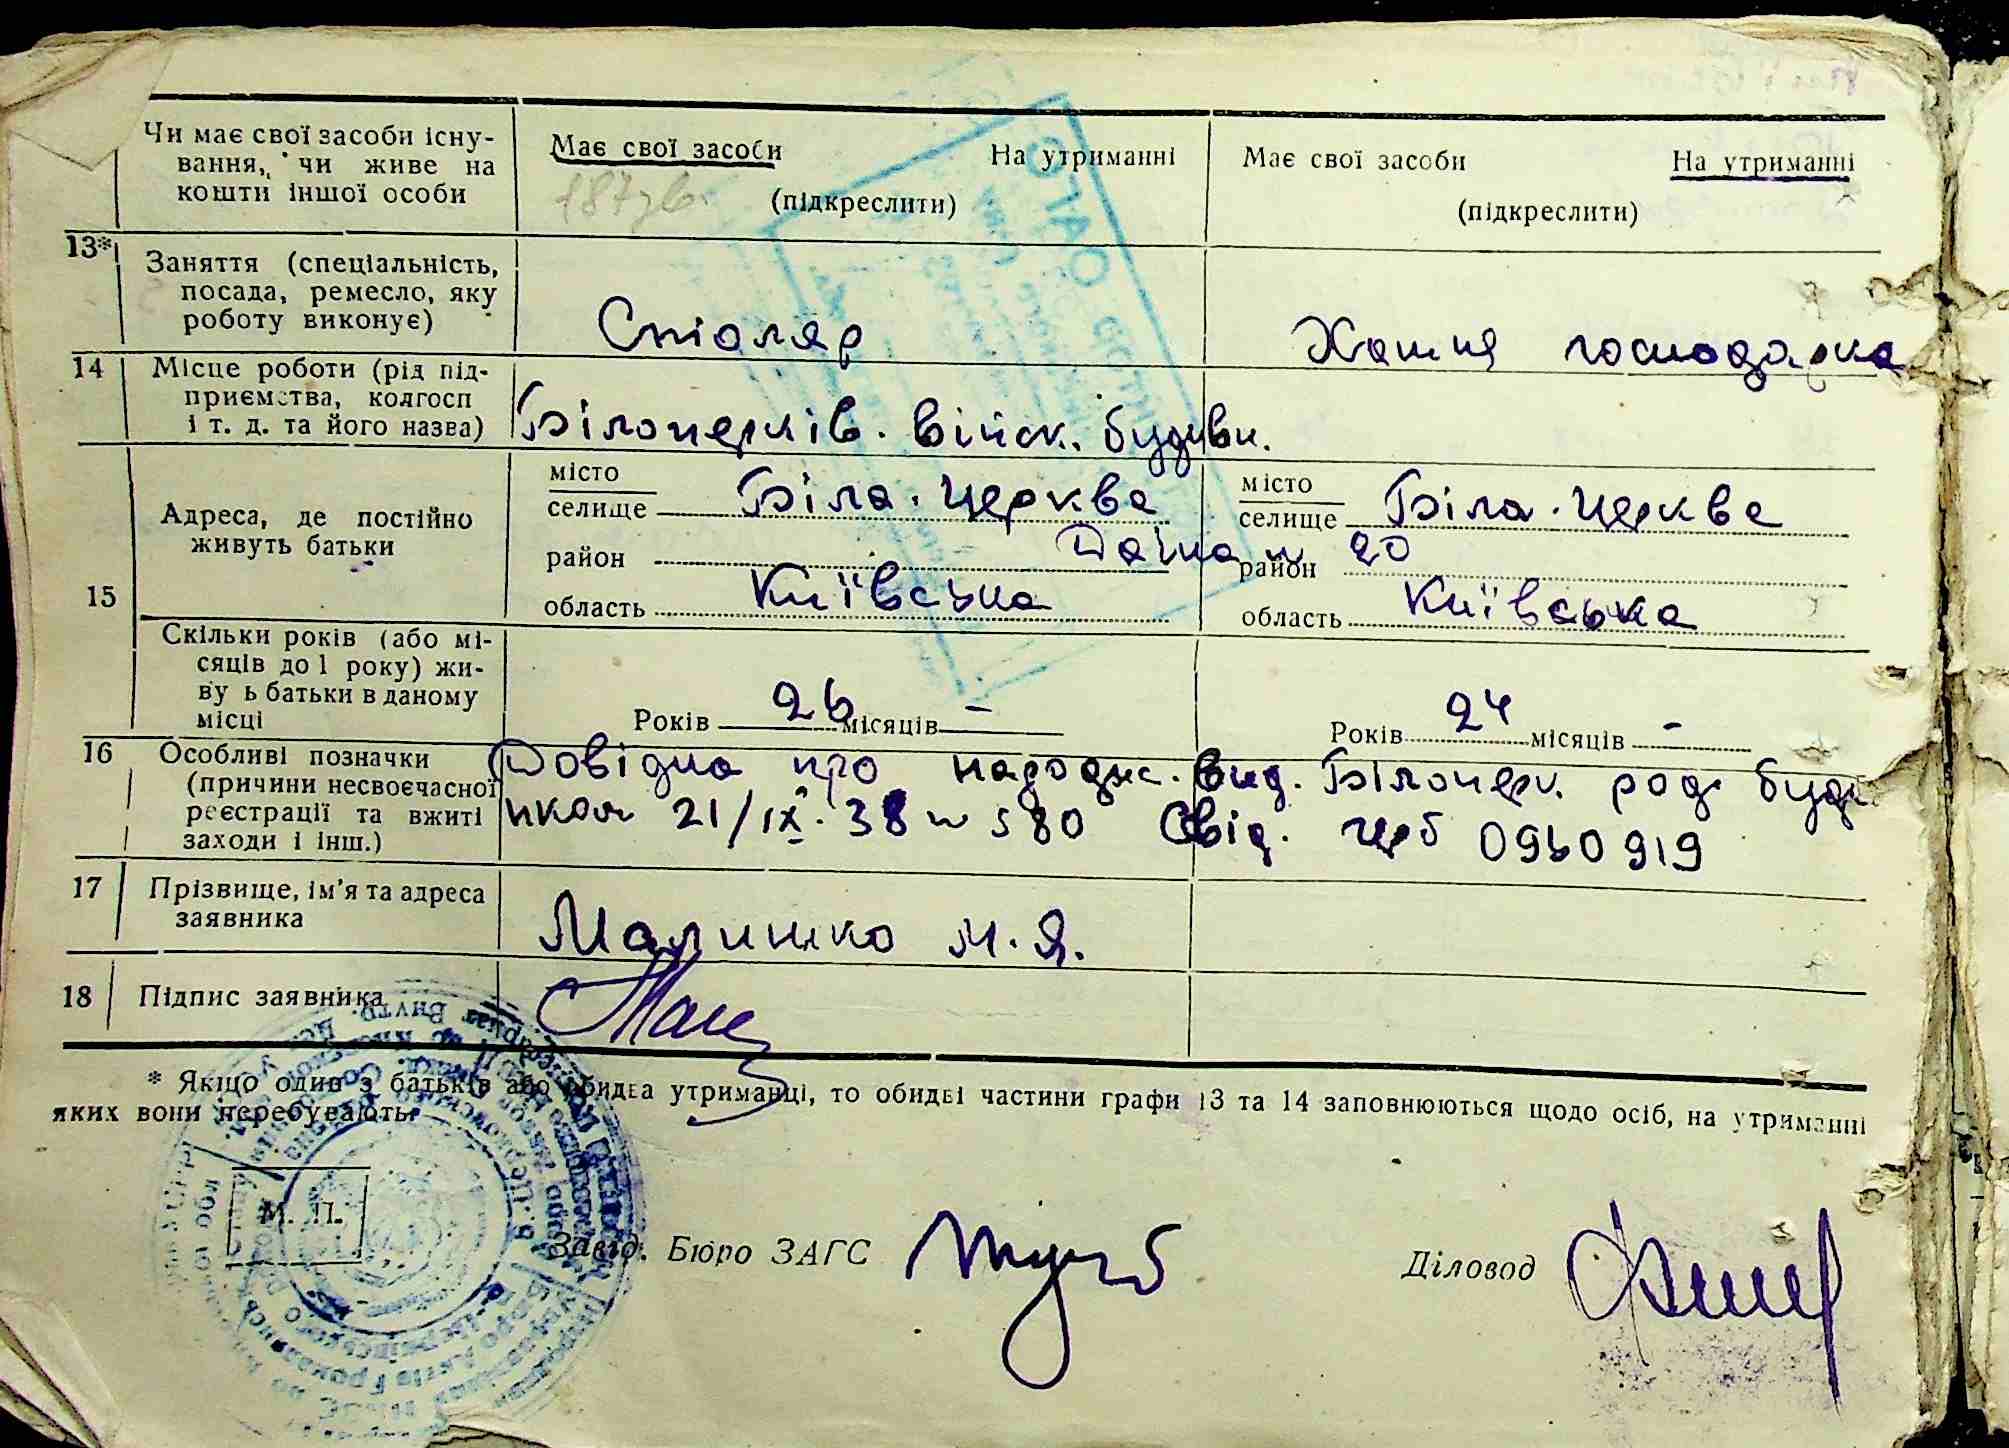 Чи має свої засоби існу-
вання, чи живе на
кошти іншої особи
Має свої засоби На утриманні
(підкреслити)
Має свої засоби На утриманні
(підкреслити)
13*
Заняття (спеціальність,
посада, ремесло, яку
роботу виконує)
Столяр
Хатня господарка
14
Місце роботи (рід під-
приємства, колгосп
і т. д. та його назва)
Білоцерків. війск. будівн.
15
Адреса, де постійно
живуть батьки
місто
селище Біла-Церква
район
область Київська
місто
селище Біла-Церква
20
район
область Київська
Скільки років (або мі-
сяців до 1 року) жи-
ву ь батьки в даному
місці
Років 26 місяців —
Років 24 місяців —
16
Особливі позначки
(причини несвоєчасної
реєстрації та вжиті
заходи і інш.)
Довідка про народж. вид. Білоцерк. род. буди
нком 21/IX. 38 № 580 Свід. 0960919
17
Прізвище, ім'я та адреса
заявника
Малишко М. Я.
18
Підпис заявника
* Якщо один з батьків або обидва утриманці, то обидві частини графи 13 та 14 заповнюються щодо осіб, на утриманні
яких вони перебувають.
М. П.
Завід. Бюро ЗАГС
Діловод